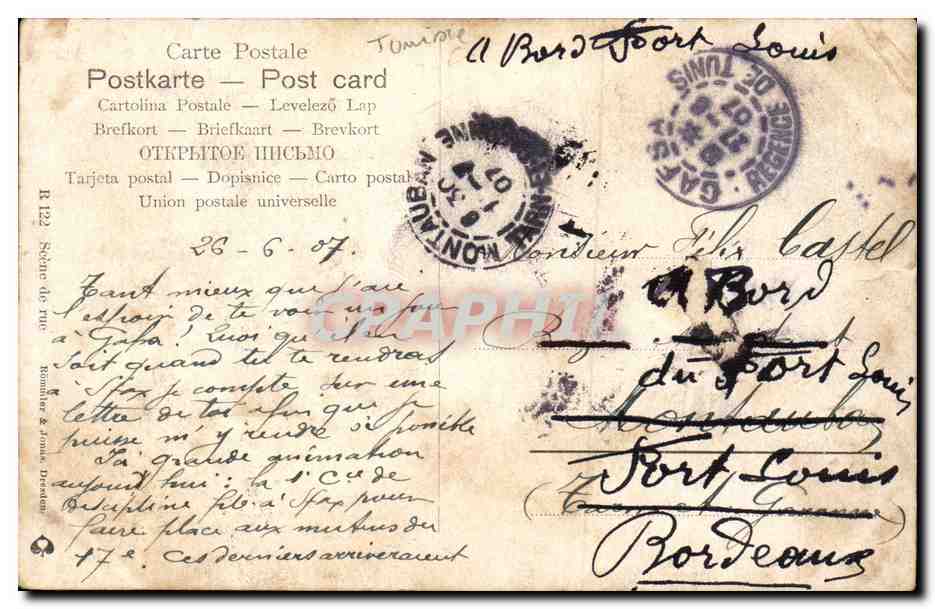 Tunisie
A Bord Fort Louis
Carte Postale
Postkarte — Post card
Cartolina Postale — Levelező Lap
Brefkort — Briefkaart — Brevkort
ОТКРЫТОЕ ПИСЬМО
Tarjeta postal — Dopisnice — Carto postal
Union postale universelle
GAFSA
RÉGENCE DE TUNIS
MONTAUBAN
TARN-ET-GARONNE
26-6-07.
Tant mieux que j'aie
l'espoir de te voir un peu
à Gafsa! Quoi qu'il en
soit quand tu te rendras
à Sfax je compte sur une
lettre de toi afin que je
puisse m'y rendre si possible
Ici grande animation
aujourd'hui: la 1e Cie de
discipline file à Sfax pour
faire place aux mutins du
17e. Ces derniers arriveraient
Monsieur Félix Castel
A Bord
du Fort Louis
Montauban
Port Louis
(Tarn et Garonne)
Bordeaux
R 122 Scène de rue
Römmler & Jonas, Dresden
CPAPHIL